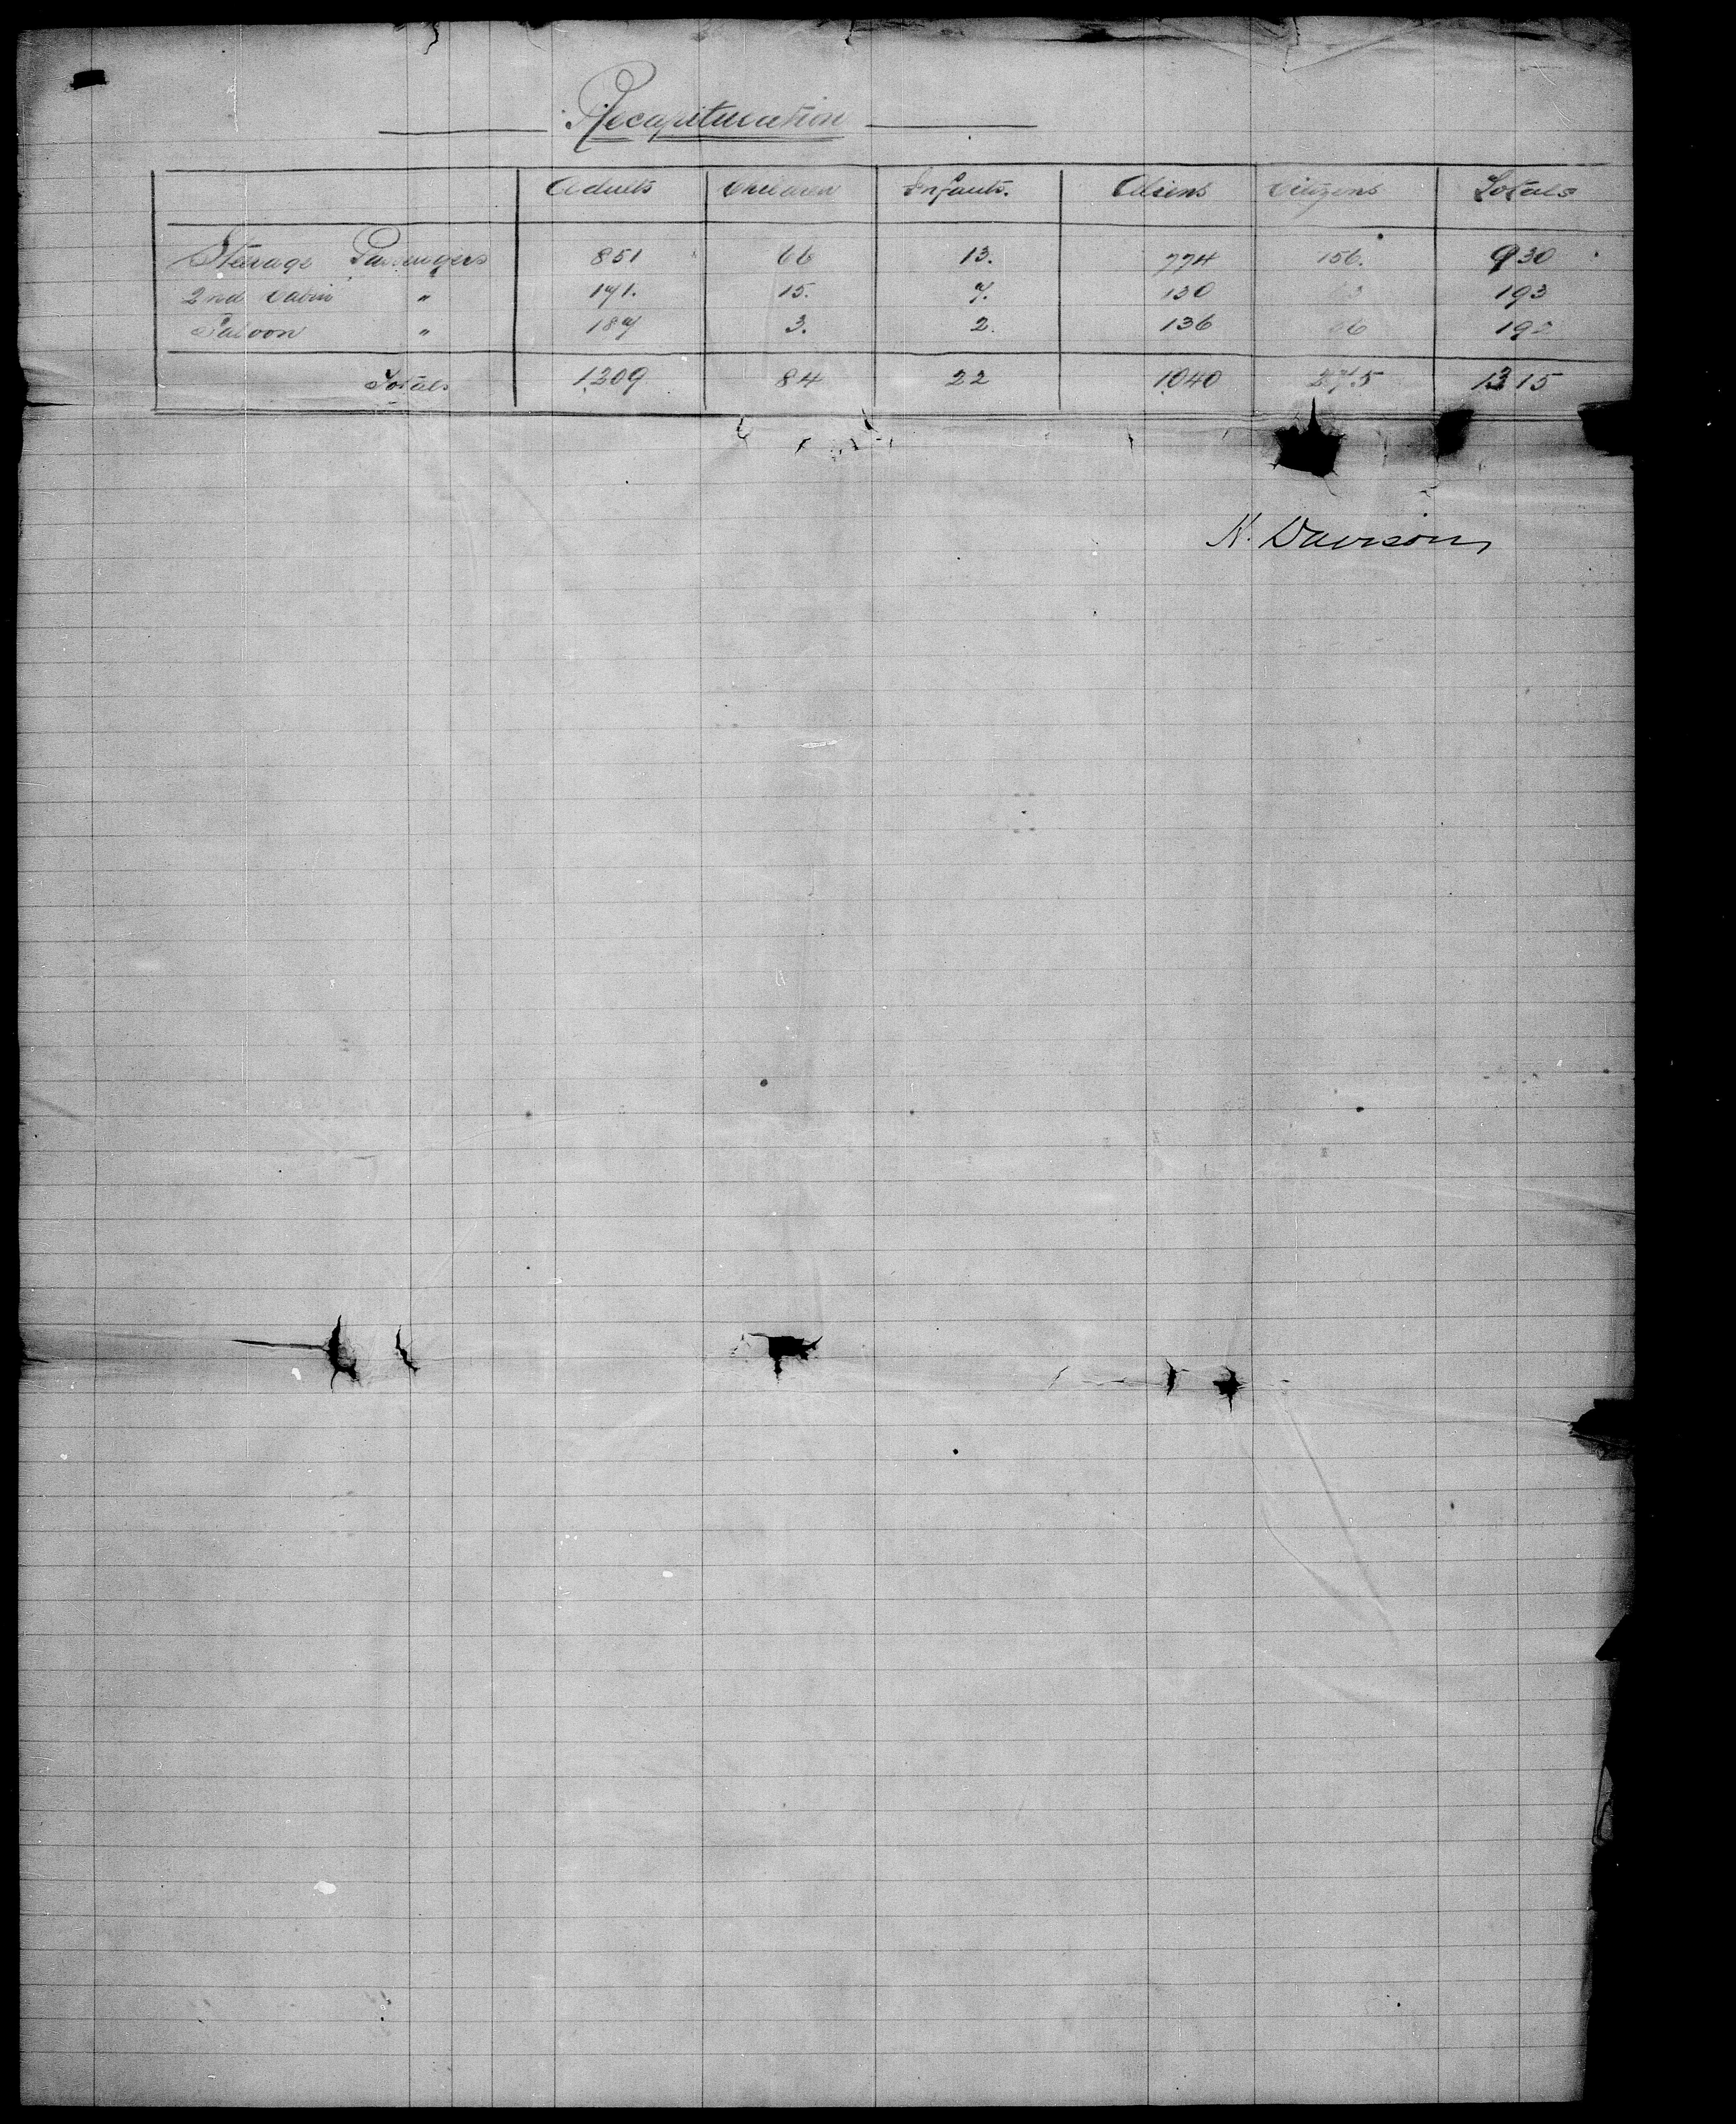 Recapitulation
Adults Children Infants. Aliens Citizens Totals
Steerage Passengers 851 66 13. 774 156. 930
2nd Cabin " 171. 15. 7. 130 193
Saloon " 187 3. 2. 136 192
Totals 1,209 84 22 1,040 275 1,315
N. Davison